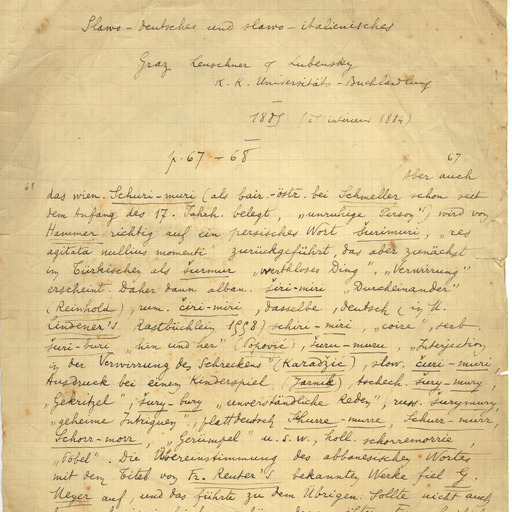 Slawo-deutsches und slawo-italienisches
Graz Leuschner & Lubensky
K. K. Universitäts-Buchhandlung
1885 1884)
p. 67-68
67
Aber auch
68
das wien. Schuri-muri (als bair.-östr. bei Schmeller schon seit
dem Anfang des 17. Jahrh. belegt, „unruhige Person") wird von
Hammer richtig auf ein persisches Wort šurimuri, „res
agitata nullius momenti" zurückgeführt, das aber zunächst
im Türkischen als šurmur „werthloses Ding", „Verwirrung"
erscheint. Daher dann alban. širi-miri „Durcheinander"
(Reinhold), rum. ciri-miri, dasselbe, deutsch (in M.
Lindener's Rastbüchlein 1558) schiri-miri, „coire", serb.
šuri-buri „hin und her" (Popović), žuru-muru, „Interjection
in der Verwirrung des Schreckens" (Karadžić), slow. čuri-muri
Ausdruck bei einem Kinderspiel (Jarnik), tschech. šury-mury,
„Gekritzel", šury-bury „unverständliche Reden", russ. šurymury,
„geheime Intriguen", plattdeutsch Schurre-murre, Schurr-murr,
Schorr-morr, „Gerümpel" u.s.w., holl. schorremorrie,
„Pöbel". Die Übereinstimmung des albanesischen Wortes
mit dem Titel von Fr. Reuter's bekannten Werke fiel G.
Meyer auf, und das führte zu dem Übrigen. Sollte nicht auch